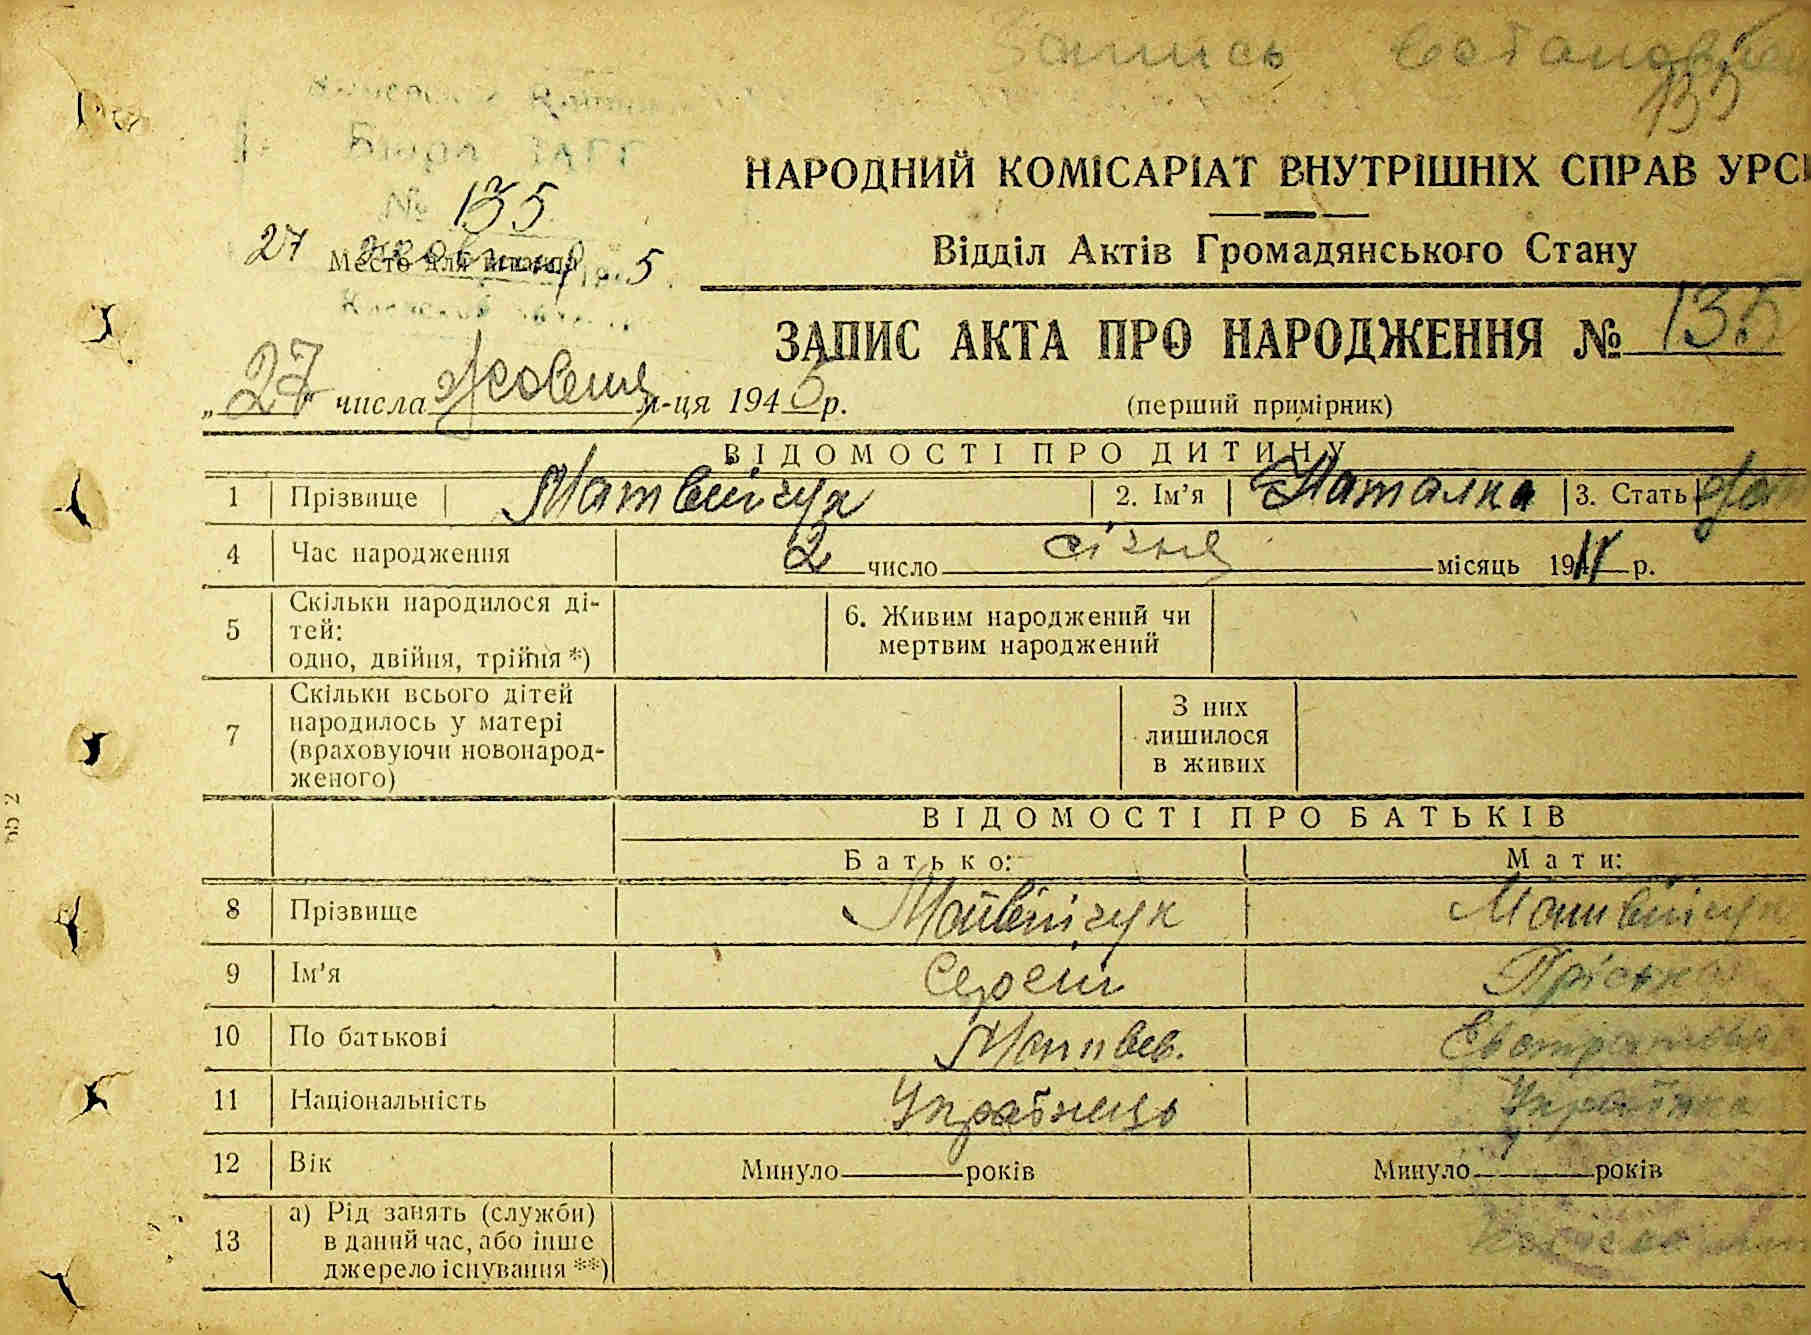 Запись востановлен
135
Бюро ЗАГС
№ 135
НАРОДНИЙ КОМІСАРІАТ ВНУТРІШНІХ СПРАВ УРСР
27 жовтня 5
Место для штампа
Відділ Актів Громадянського Стану
ЗАПИС АКТА ПРО НАРОДЖЕННЯ № 135
„27" числа Жовтня м-ця 1945 р.
(перший примірник)
ВІДОМОСТІ ПРО ДИТИНУ
1 Прізвище Матвійчук 2. Ім'я Наталка 3. Стать
4 Час народження 2 число січня місяць 19 р.
5 Скільки народилося ді-
тей:
одно, двійня, трійня *)
6. Живим народжений чи
мертвим народжений
7 Скільки всього дітей
народилось у матері
(враховуючи новонарод-
женого)
З них
лишилося
в живих
ВІДОМОСТІ ПРО БАТЬКІВ
Батько: Мати:
8 Прізвище Матвійчук Матвійчук
9 Ім'я Сергій Пріська
10 По батькові Матвєв. Евстратовна
11 Національність Українець Українка
12 Вік Минуло років Минуло років
13 а) Рід занять (служби)
в даний час, або інше
джерело існування **)